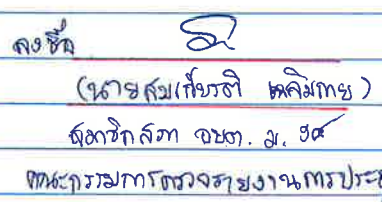 ลงชื่อ
(นายสมเกียรติ เฉลิมกาย)
สมาชิกสภา อบต. ม. ๑๙
คณะกรรมการตรวจรายงานการประ